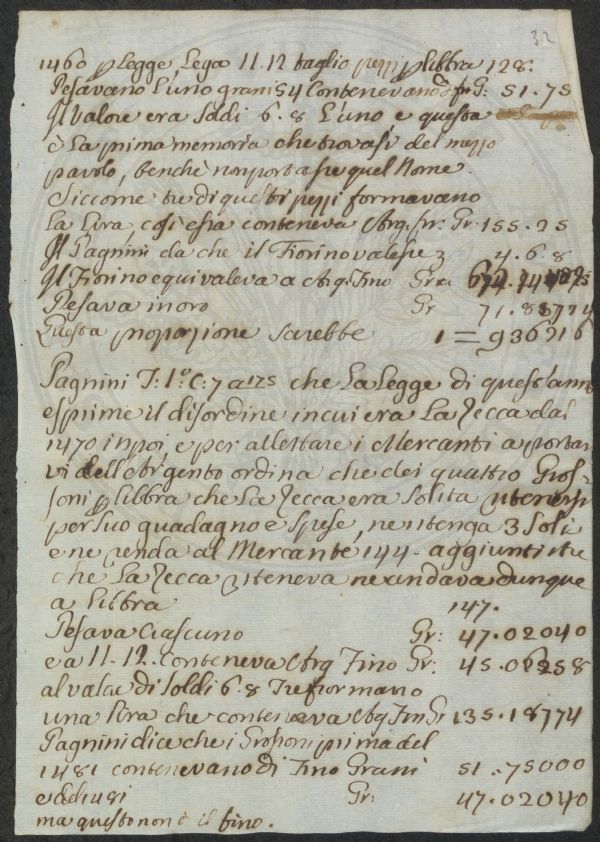 32
1460 p Legge Lega 11.12 taglio pezzi p libbra 128.
Pesavano L'uno grani 54 Contenevano d fin G: 51.75
Il Valore era Soldi 6.8 L'uno e questa
è La prima memoria che trovasi del mezzo
pavolo, benchè non portasse quel Nome.
Siccome tre di questi pezzi formavano
La Lira così essa conteneva Arg. fin: Gr: 155.25
Il Pagnini da che il Fiorino valesse 4.6.8
Il Fiorino equivaleva a Arg: Fino Gra:
Pesava in oro Gr
Questa proporzione sarebbe 1 = 936216
Pagnini T: 1.o C: 7 a 175 che La Legge di quest'anno
esprime il disordine in cui era La Zecca dal
1470 in poi, e per allettare i Mercanti a portar
vi dell'Argento ordina che dei quattro Gros-
soni p libbra che La Zecca era solita ritenersi
per suo guadagno e spese, ne ritenga 3 Soli
e ne renda al Mercante 144 - aggiunti i tre
che La Zecca riteneva ne andava dunque
a libbra 147.
Pesava Ciascuno Gr: 47.02040
e a 11.12. Conteneva Arg Fino Gr: 45.06258
al valor di Soldi 6.8 Tre formano
una Lira che conteneva Arg Fin Gr 135.18774
Pagnini dice che i Grossoni prima del
1481 contenevano di Fino Grani 51.75000
e Gr: 47.02040
ma questo non è il fino.